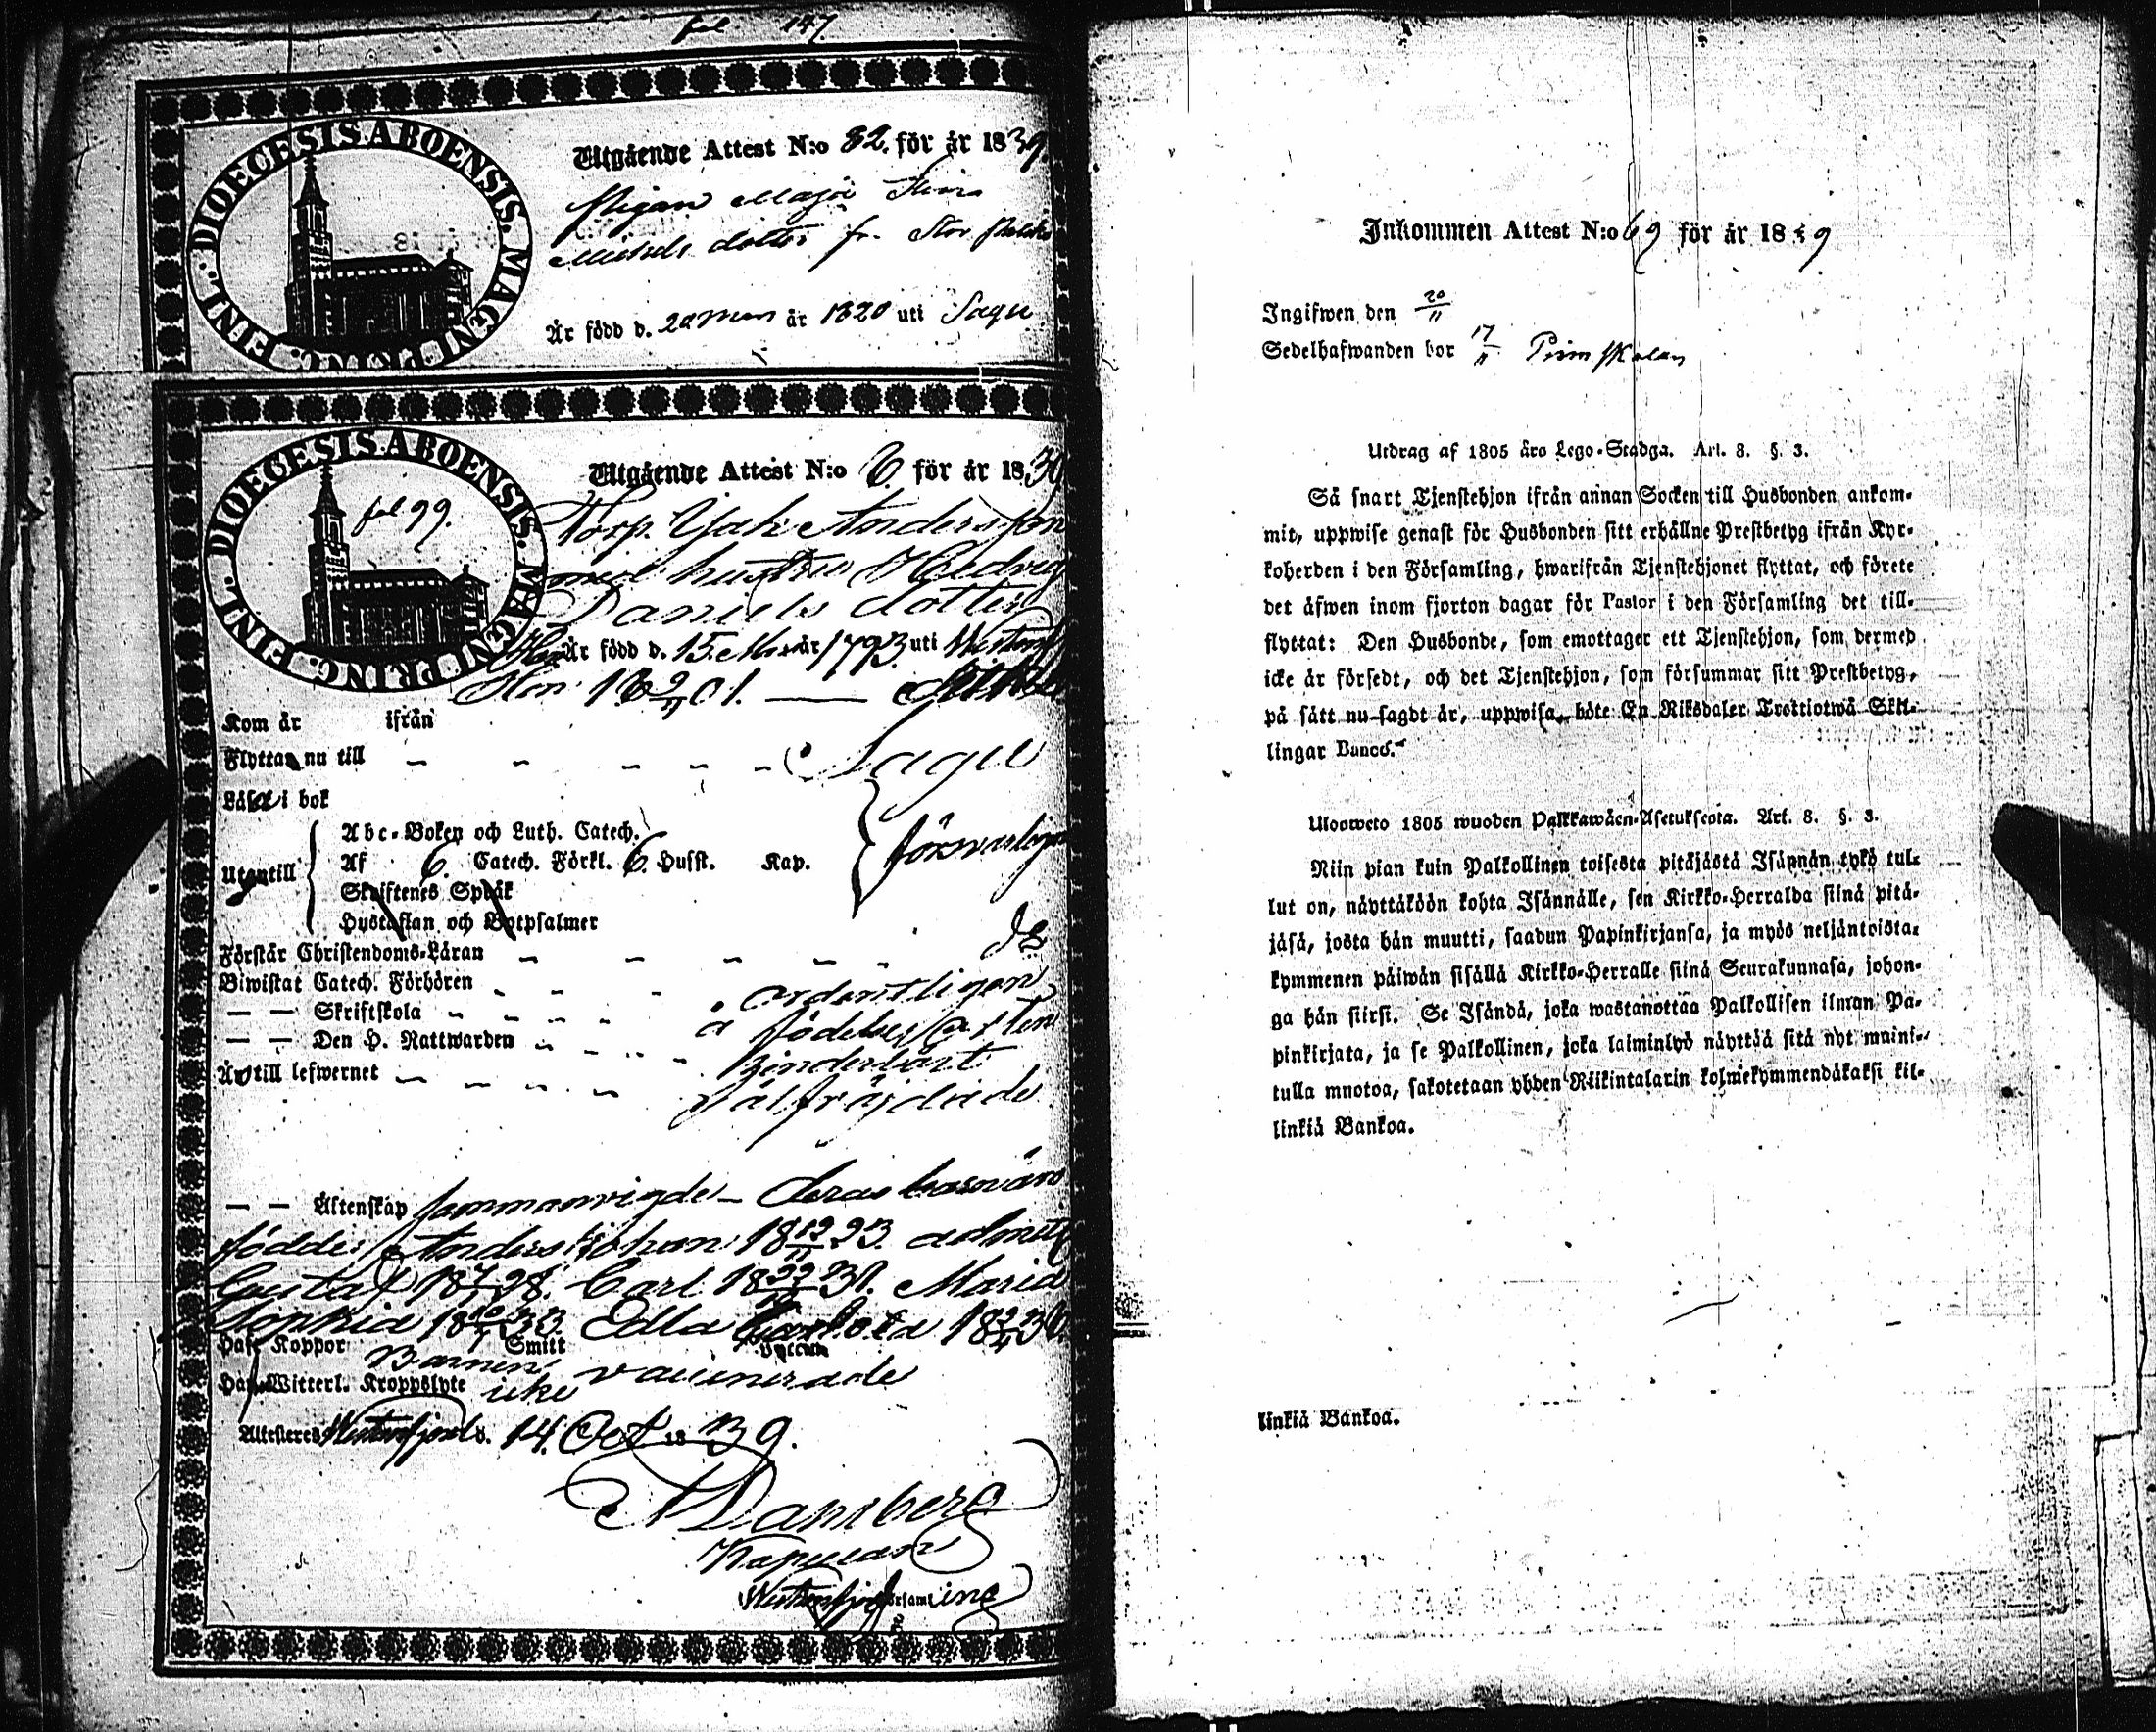 fol 147
DIOECESIS ABOENSIS. MAGNI PRINC. FINL.
Utgående Attest N:o 82. för år 1839
Pigan Maja Stina
Michels dotter fr. Stor
Är född d. 20 är 1820 uti Sagu
DIOECESIS ABOENSIS. MAGNI PRINC. FINL.
fol 99.
Utgående Attest N:o 6. för år 1839
Torp. Andersson
med hustru Hedvig
Daniels dotter
Är född d. 15. år 1793 uti
Hon 18 01. —
Kom år ifrån
Flyttar nu till — — — — — Sagu
Läsa i bok
Abc-Boken och Luth. Catech.
Utantill Af 6. Catech. Förkl. 6. Husst. Kap. försvarligen
Skriftenes Språk
Hustaflan och Botpsalmer
Förstår Christendoms-Läran — — — — —
Biwistat Catech. Förhören - - - ordentligen
— — Skriftskola - - - - - å födelse orten
— — Den H. Nattwarden - - - - -
Är till lefwernet — — — — — välfräjdade
— — Äktenskap sammanvigde — deras barn
födde: Anders Johan 18 12/11 23.
Gustaf 18 28. Carl 18 31. Maria
Sophia 18 33. Edla 18 36
Haft Koppor Smitt
Barnen vaccinerade
Haf Witterl. Kroppslyte icke
Attesteres Westanfjerd d. 14. Oct 1839.
Damberg
Kapellan
Westanfjerd Församling
Inkommen Attest N:o 69 för år 1839
Ingifwen den 20/11
Sedelhafwanden bor 17/11
Utdrag af 1805 års Lego-Stadga. Art. 8. §. 3.
Så snart Tjenstehjon ifrån annan Socken till Husbonden ankom-
mit, uppwise genast för Husbonden sitt erhållne Prestbetyg ifrån Kyr-
koherden i den Församling, hwarifrån Tjenstehjonet flyttat, och förete
det äfwen inom fjorton dagar för Pastor i den Församling det till-
flyttat: Den Husbonde, som emottager ett Tjenstehjon, som dermed
icke är försedt, och det Tjenstehjon, som försummar sitt Prestbetyg,
på sätt nu sagdt är, uppwisa, böte En Riksdaler Trettiotwå Skil-
lingar Banco.
Uloosweto 1805 wuoden Palkkawäen-Asetuksesta. Art. 8. §. 3.
Niin pian kuin Palkollinen toisesta pitäjästä Isännän tykö tul-
lut on, näyttäköön kohta Isännälle, sen Kirkko-Herralda siinä pitä-
jäsä, josta hän muutti, saadun Papinkirjansa, ja myös neljäntoista-
kymmenen päiwän sisällä Kirkko-Herralle siinä Seurakunnasa, johon-
ga hän siirsi. Se Isändä, joka wastanottaa Palkollisen ilman Pa-
pinkirjata, ja se Palkollinen, joka laiminlyö näyttää sitä nyt maini-
tulla muotoa, sakotetaan yhden Riikintalarin kolmekymmendäkaksi kil-
linkiä Bankoa.
linkiä Bankoa.